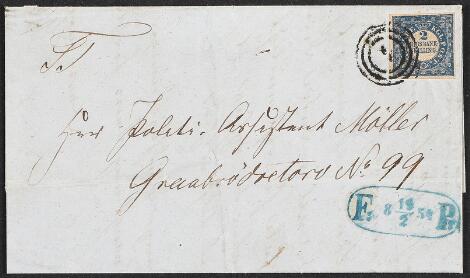 2
RIGSBANK
SKILLING
1
S T
Herr Politi-Assistent Möller
Graabrödretorv No 99
F: 8 18/2 54 P: